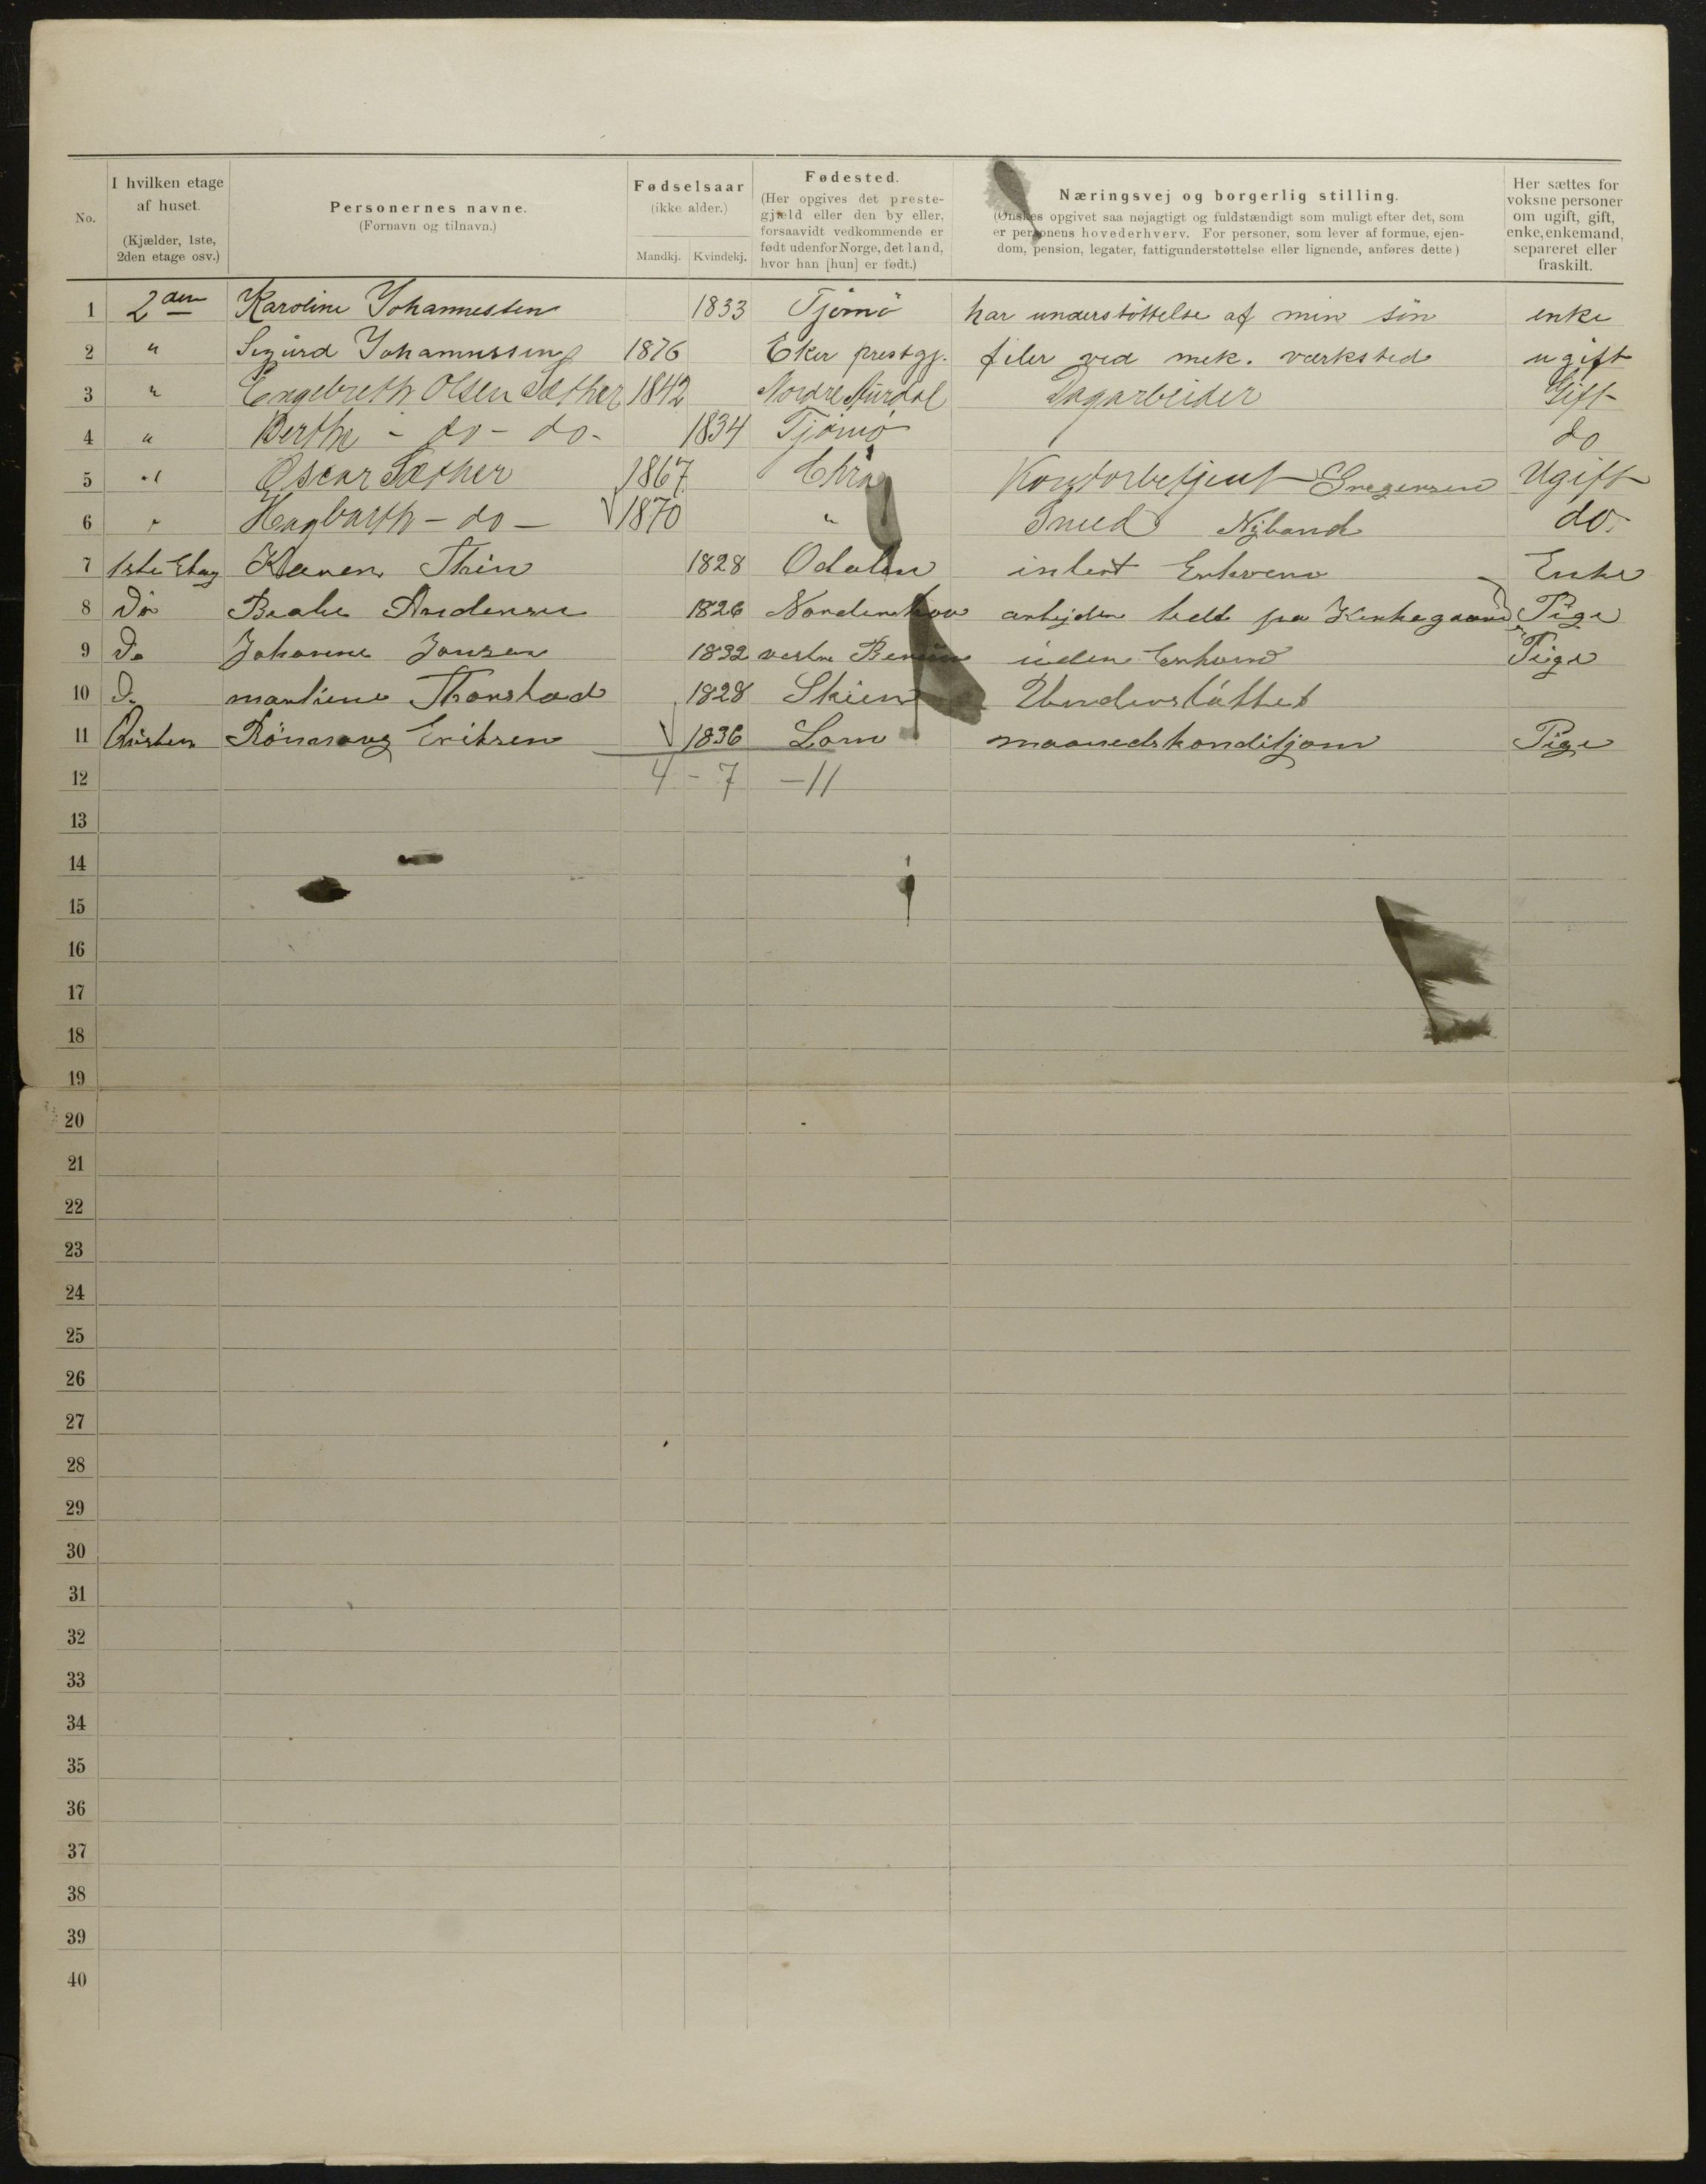 No.
I hvilken etage af huset. (Kjælder, 1ste, 2den etage osv.)
Personernes navne. (Fornavn og tilnavn.)
Fødselsaar (ikke alder.) Mandkj. Kvindekj.
Fødested. (Her opgives det prestegjæld eller den by eller, forsaavidt vedkommende er født udenfor Norge, det land, hvor han [hun] er født.)
Næringsvej og borgerlig stilling. (Ønskes opgivet saa nøjagtigt og fuldstændigt som muligt efter det, som er personens hovederhverv. For personer, som lever af formue, ejendom, pension, legater, fattigunderstøttelse eller lignende, anføres dette)
Her sættes for voksne personer om ugift, gift, enke, enkemand, separeret eller fraskilt.
1 2den Karoline Johannessen 1833 Tjømö har understöttelse af min sön enke
2 " Sigurd Johannessen 1876 Eker prestgj. filer ved mek. værksted ugift
3 " Engebreth Olsen Sæther 1842 Nordre Aurdal Dagarbeider Gift
4 " Berthe - do - do - 1834 Tjömö do
5 " Oscar Sæther 1867 Chra Kontorbetjent Ugift
6 " Hagbarth - do - 1870 " Smed Nyland do.
7 1ste Etag Karen Thin 1828 Odalen intet Erhverv Enke
8 Do Beathe Andersen 1826 arbejder paa Kirkegaard Pige
9 Do Johanne Jonsen 1832 vestre inden Erhverv Pige
10 Do martine Thorstad 1828 Skien Understöttet
11 Eriksen 1836 Lom maanedskondisjon Pige
12 4 - 7 - 11
13
14
15
16
17
18
19
20
21
22
23
24
25
26
27
28
29
30
31
32
33
34
35
36
37
38
39
40